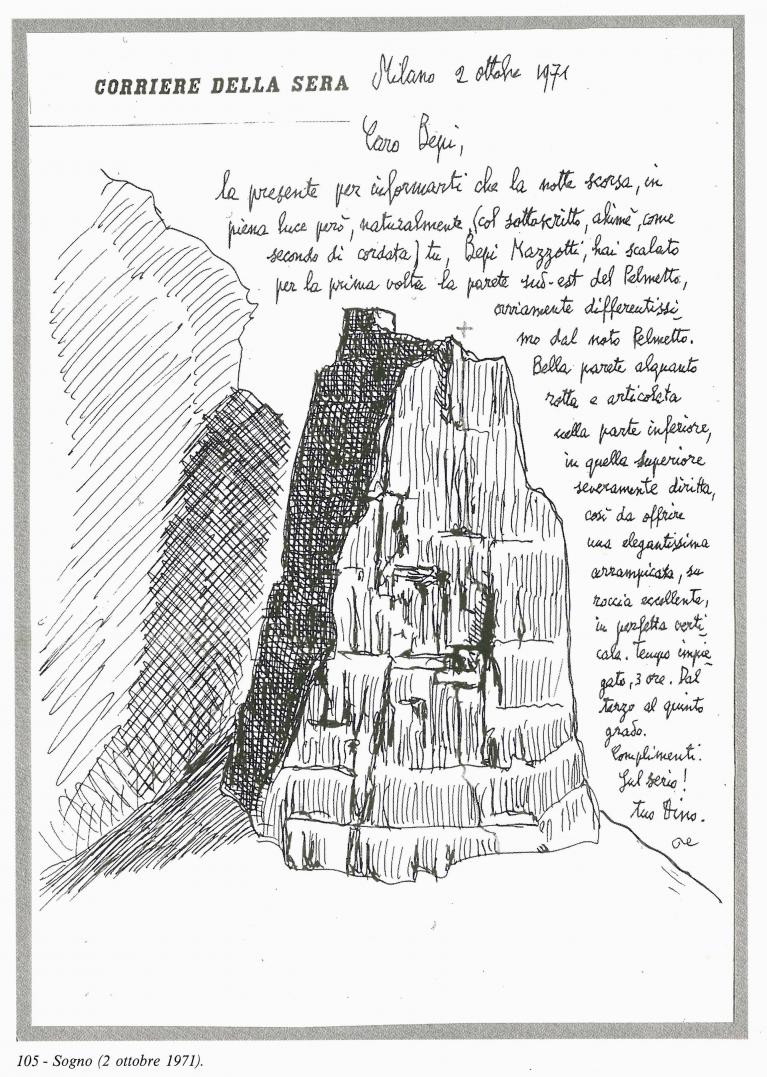 CORRIERE DELLA SERA Milano 2 ottobre 1971
Caro Bepi,
la presente per informarti che la notte scorsa, in
piena luce però, naturalmente, (col sottoscritto, ahimè, come
secondo di cordata) tu, Bepi Mazzotti, hai scalato
per la prima volta la parete sud-est del Pelmetto,
ovviamente differentissi-
mo dal noto Pelmetto.
Bella parete alquanto
rotta e articolata
nella parte inferiore,
in quella superiore
severamente diritta,
così da offrire
una elegantissima
arrampicata, su
roccia eccellente,
in perfetta verti-
cale. Tempo impie-
gato, 3 ore. Dal
terzo al quinto
grado.
Complimenti.
Sul serio!
tuo Dino.
105 - Sogno (2 ottobre 1971).